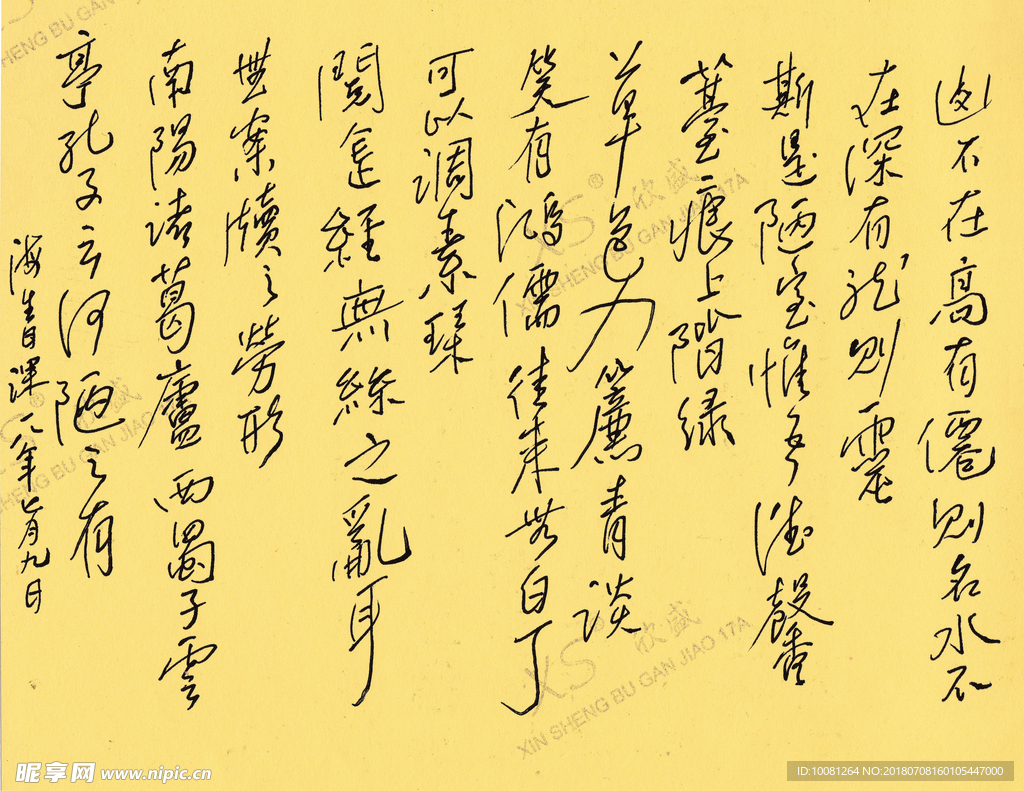 山不在高有僊則名水不
在深有龙則靈
斯是陋室惟吾德馨
薹痕上階緑
草色入簾青談
笑有鴻儒往来無白丁
可以調素琴
閱金經無絲之亂耳
無案牘之勞形
南陽諸葛廬西蜀子雲
亭孔子云何陋之有
海青日课一八年七月九日
XS® 欣盛
XIN SHENG BU GAN JIAO 17A
XS® 欣盛
XIN SHENG BU GAN JIAO 17A
昵享网 www.nipic.cn
ID:10081264 NO:20180708160105447000